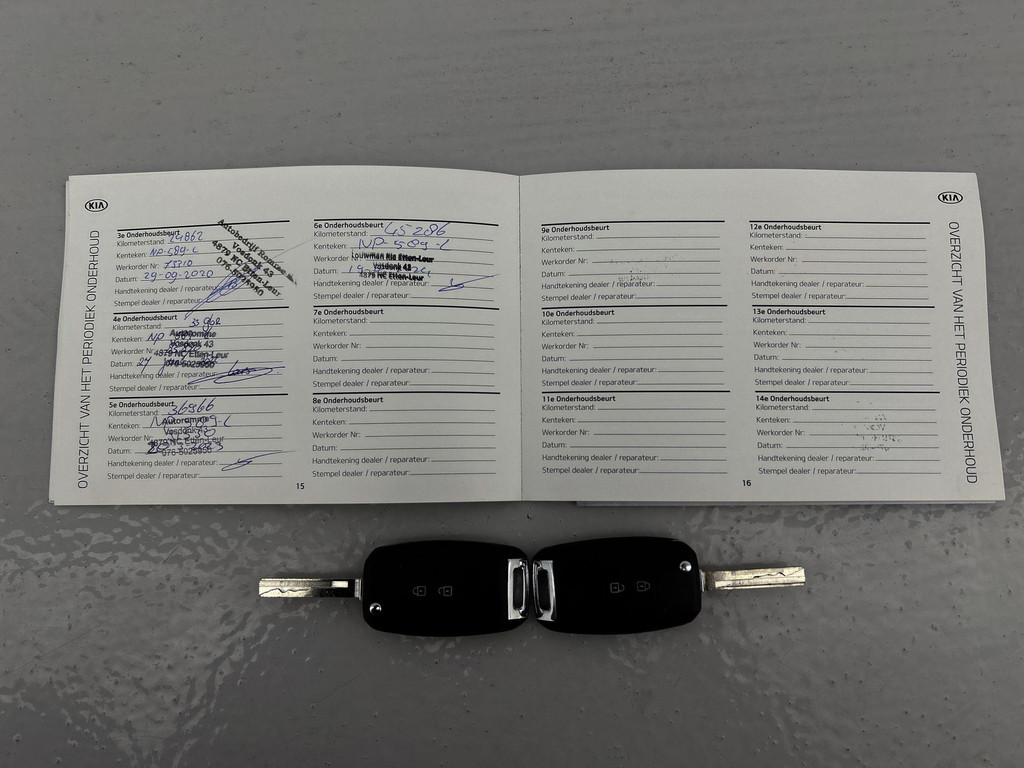 KIA
OVERZICHT VAN HET PERIODIEK ONDERHOUD
3e Onderhoudsbeurt
Kilometerstand: 24862
Kenteken: NP-589-L
Werkorder Nr: 75210
Datum: 29-09-2020
Handtekening dealer / reparateur:
Stempel dealer / reparateur:
Autobedrijf Romme
Vosdonk 43
4879 NC Etten-Leur
076-5025950
4e Onderhoudsbeurt
Kilometerstand:
Kenteken: NP
Werkorder Nr:
Datum: 27
Handtekening dealer / reparateur:
Stempel dealer / reparateur:
Autoromme
Vosdonk 43
4879 NC Etten-Leur
076-5025950
5e Onderhoudsbeurt
Kilometerstand: 36966
Kenteken:
Werkorder Nr:
Datum:
Handtekening dealer / reparateur:
Stempel dealer / reparateur:
Autoromme
Vosdonk 43
4879 NC Etten-Leur
076-5025950
6e Onderhoudsbeurt
Kilometerstand: 45286
Kenteken: NP-589-L
Werkorder Nr:
Datum: 19
Handtekening dealer / reparateur:
Stempel dealer / reparateur:
Louwman Kia Etten-Leur
Vosdonk 43
4879 NC Etten-Leur
7e Onderhoudsbeurt
Kilometerstand:
Kenteken:
Werkorder Nr:
Datum:
Handtekening dealer / reparateur:
Stempel dealer / reparateur:
8e Onderhoudsbeurt
Kilometerstand:
Kenteken:
Werkorder Nr:
Datum:
Handtekening dealer / reparateur:
Stempel dealer / reparateur:
15
9e Onderhoudsbeurt
Kilometerstand:
Kenteken:
Werkorder Nr:
Datum:
Handtekening dealer / reparateur:
Stempel dealer / reparateur:
10e Onderhoudsbeurt
Kilometerstand:
Kenteken:
Werkorder Nr:
Datum:
Handtekening dealer / reparateur:
Stempel dealer / reparateur:
11e Onderhoudsbeurt
Kilometerstand:
Kenteken:
Werkorder Nr:
Datum:
Handtekening dealer / reparateur:
Stempel dealer / reparateur:
12e Onderhoudsbeurt
Kilometerstand:
Kenteken:
Werkorder Nr:
Datum:
Handtekening dealer / reparateur:
Stempel dealer / reparateur:
13e Onderhoudsbeurt
Kilometerstand:
Kenteken:
Werkorder Nr:
Datum:
Handtekening dealer / reparateur:
Stempel dealer / reparateur:
14e Onderhoudsbeurt
Kilometerstand:
Kenteken:
Werkorder Nr:
Datum:
Handtekening dealer / reparateur:
Stempel dealer / reparateur:
16
KIA
OVERZICHT VAN HET PERIODIEK ONDERHOUD